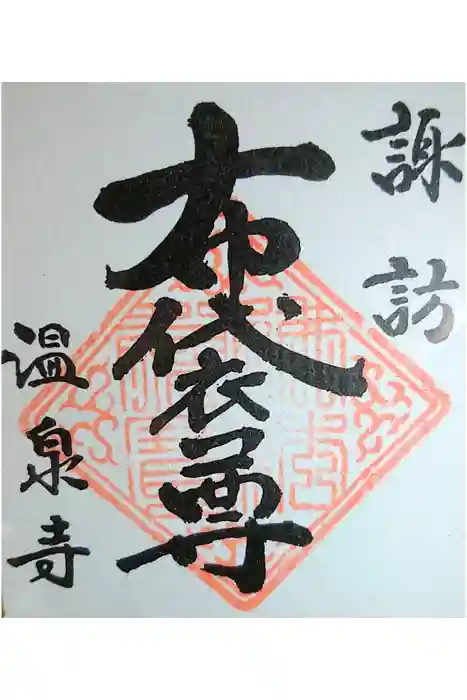 諏訪
布袋尊
温泉寺